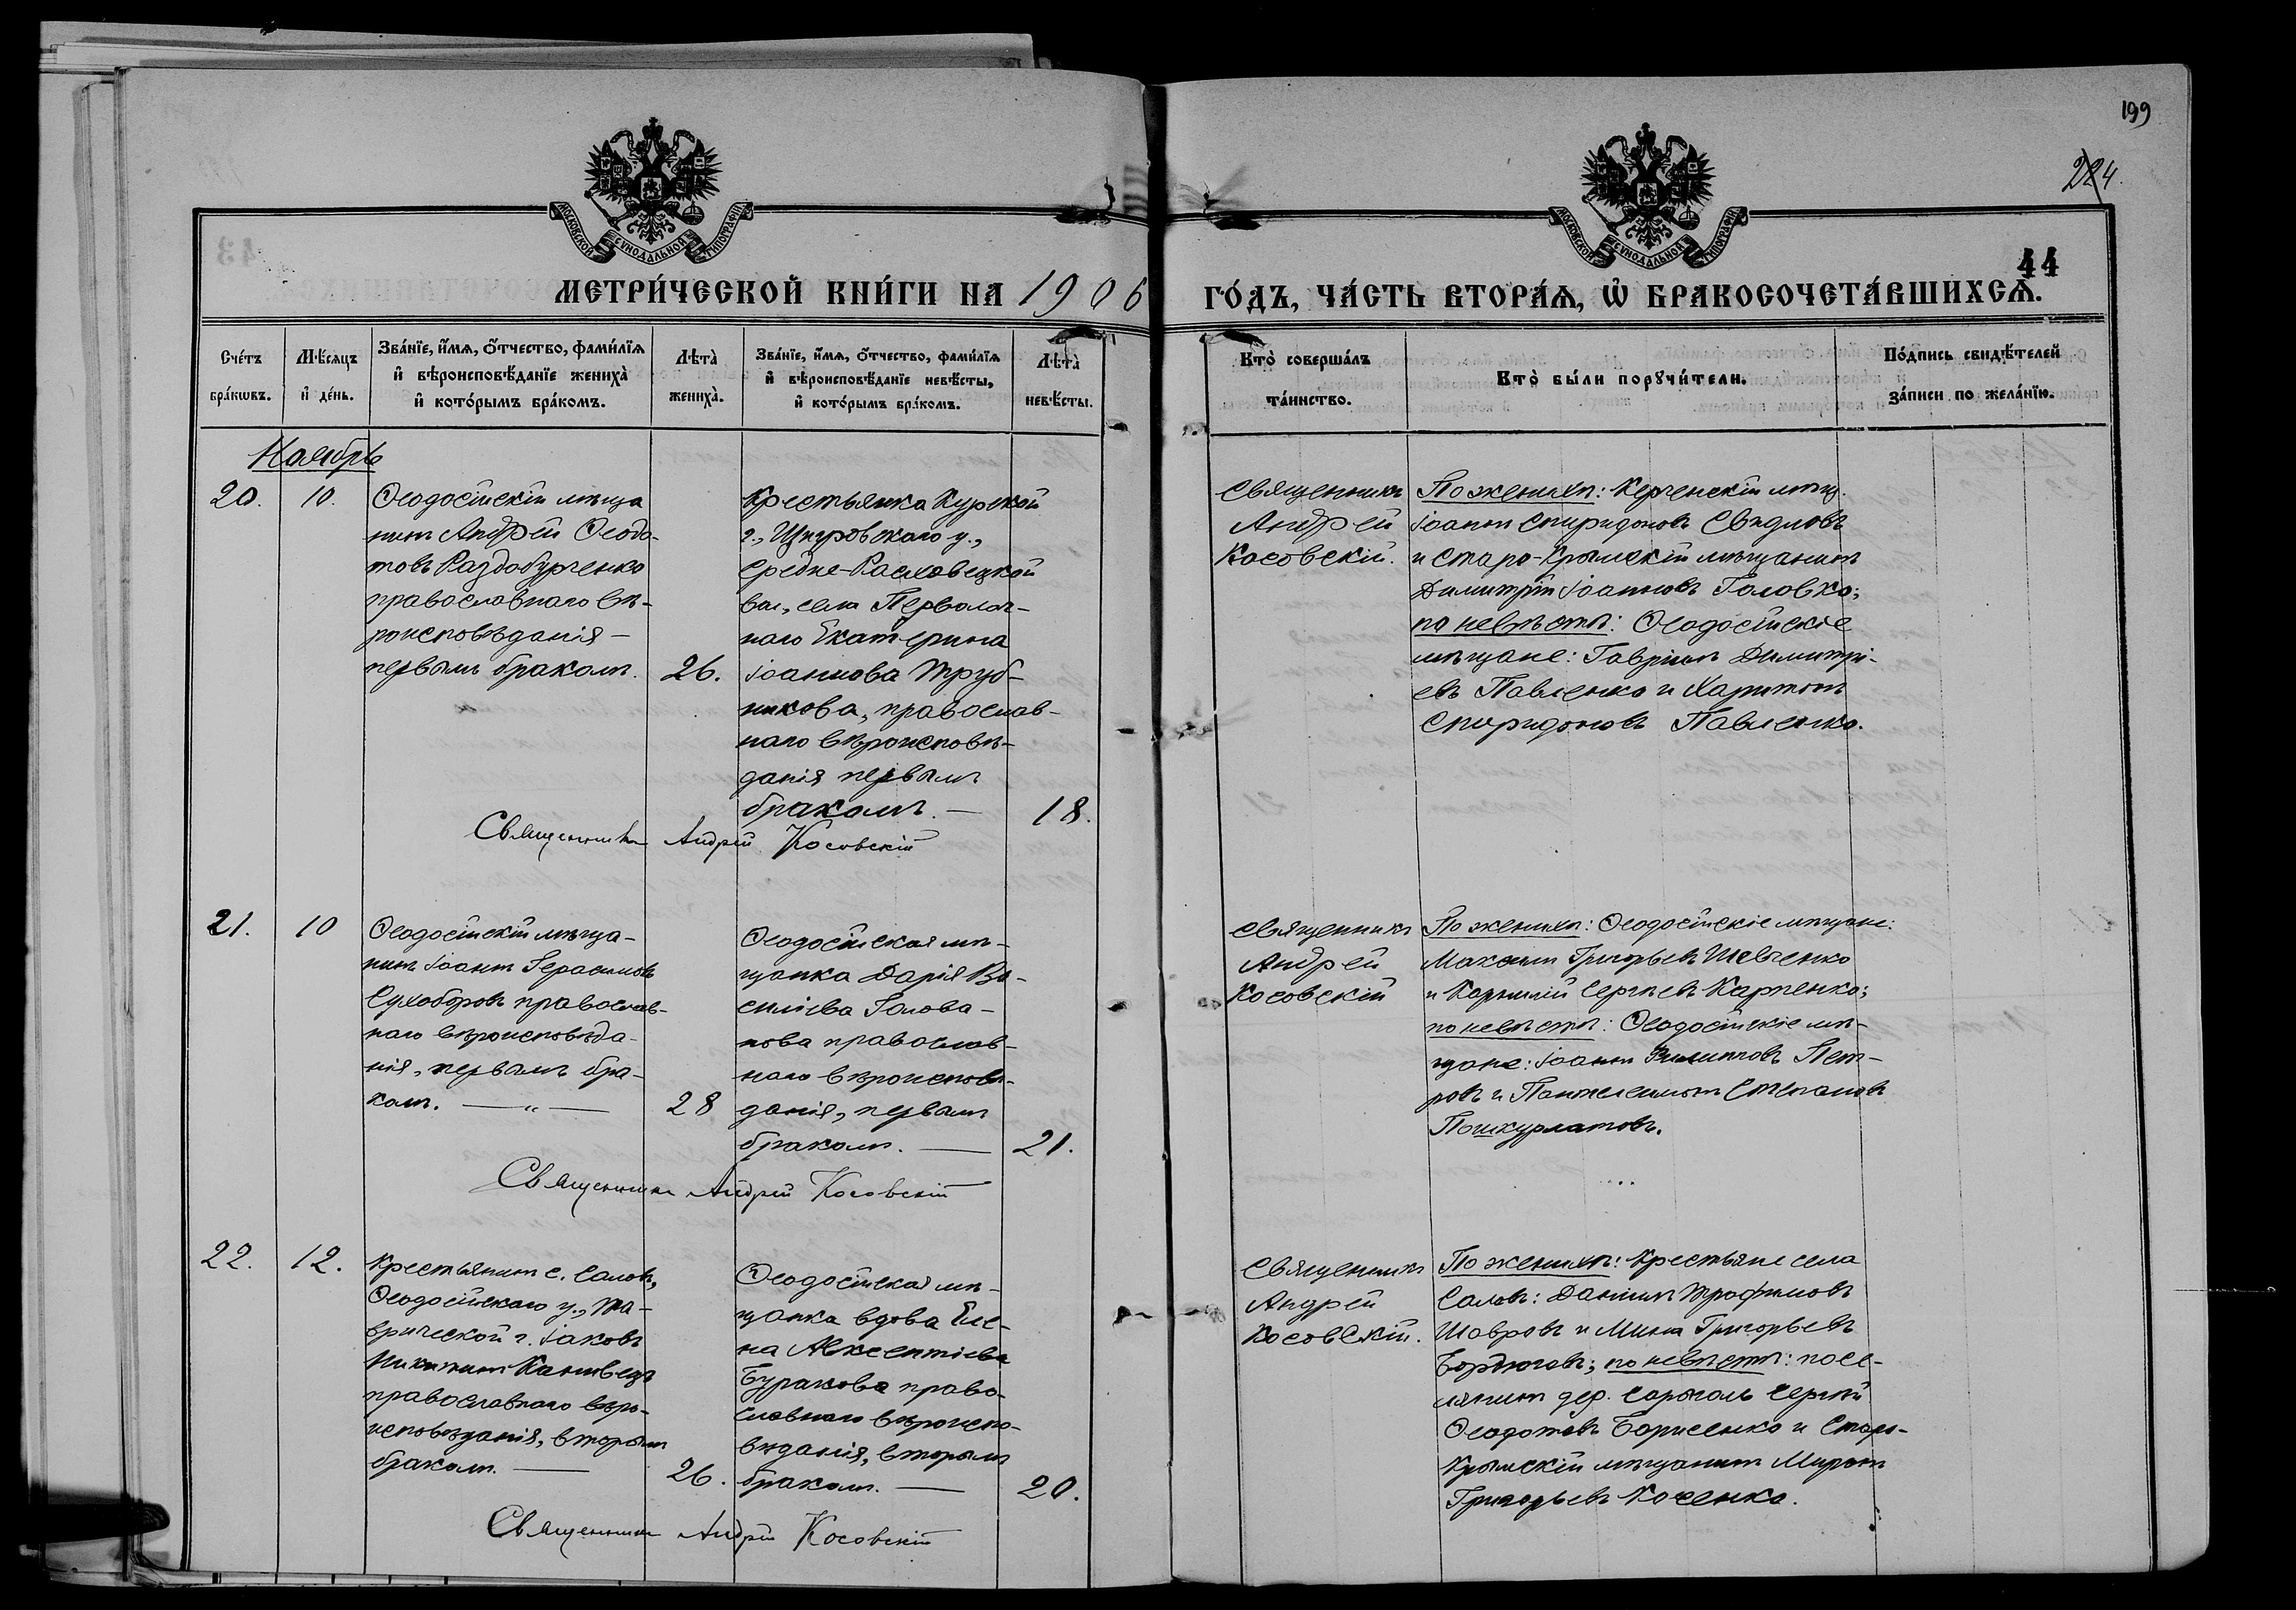 199
224.
44
МОСКОВСКОЙ СУНОДАЛЬНОЙ ТИПОГРАФІИ
МОСКОВСКОЙ СУНОДАЛЬНОЙ ТИПОГРАФІИ
МЕТРИ́ЧЕСКОЙ КНИ́ГИ НА 1906
ГО́ДЪ, ЧА́СТЬ ВТОРА́Я, Ѡ҆ БРАКОСОЧЕТА́ВШИХСЯ.
Сче́тъ
бра́кѡвъ.
Мѣ́сяцъ
и҆ де́нь.
Зва́нїе, и҆́мя, ѻ҆́тчество, фами́лїя
и҆ вѣроисповѣ́данїе жениха̀
и҆ кото́рымъ бра́комъ.
Лѣта̀
жениха̀.
Зва́нїе, и҆́мя, ѻ҆́тчество, фами́лїя
и҆ вѣроисповѣ́данїе невѣ́сты,
и҆ кото́рымъ бра́комъ.
Лѣта̀
невѣ́сты.
Кто̀ соверша́лъ
та́инство.
Кто̀ бы́ли порꙋчи́тели.
По́дпись свидѣ́телей
за́писи по жела́нїю.
Ноябрь
20.
10.
Ѳеодосійскій мѣща
нинъ Андрей Ѳеодо-
товъ Раздобурченко
православнаго вѣ-
роисповѣданія —
первымъ бракомъ.
26.
Крестьянка Курской
г., Щигровскаго у.,
Средне-Расховецкой
вол., села
наго Екатерина
Іоаннова Труб-
никова, православ-
наго вѣроисповѣ-
данія первымъ
бракомъ. —
18.
Священникъ Андрей Косовскій
Священникъ
Андрей
Косовскій.
По женихѣ: Керченскій мѣщ.
Іоаннъ Спиридоновъ
и Старо-Крымскій мѣщанинъ
Димитрій Іоанновъ Головко;
по невѣстѣ: Ѳеодосійскіе
мѣщане: Гавріилъ Димитрі-
евъ Павленко и Харитонъ
Спиридоновъ Павленко.
21.
10
Ѳеодосійскій мѣща-
нинъ Іоаннъ Герасимовъ
Сухоборовъ православ-
наго вѣроисповѣда-
нія, первымъ бра-
комъ. — „ —
28
Ѳеодосійская мѣ-
щанка Дарія Ва-
силіева Голова-
нова православ-
наго вѣроисповѣ-
данія, первымъ
бракомъ. —
21.
Священникъ Андрей Косовскій
Священникъ
Андрей
Косовскій
По женихѣ: Ѳеодосійскіе мѣщане:
Максимъ Григорьевъ Шевченко
и Корнилій Сергѣевъ Карпенко;
по невѣстѣ: Ѳеодосійскіе мѣ-
щане: Іоаннъ Филипповъ Пет-
ровъ и Пантелеимонъ Степановъ
Пошкурлатовъ.
22.
12.
Крестьянинъ с. Саловъ,
Ѳеодосійскаго у., Та-
врической г. Іаковъ
Никитинъ Канивецъ
православнаго вѣро-
исповѣданія, вторымъ
бракомъ. —
26.
Ѳеодосійская мѣ-
щанка вдова Еле-
на Авксентіева
Буракова право-
славнаго вѣроиспо-
вѣданія, вторымъ
бракомъ. —
20.
Священникъ Андрей Косовскій
Священникъ
Андрей
Косовскій.
По женихѣ: Крестьяне села
Саловъ: Даніилъ Трофимовъ
Шавровъ и Мина Григорьевъ
Бордюговъ; по невѣстѣ: посе-
лянинъ дер. Сарыголь Сергѣй
Ѳеодотовъ Борисенко и Старо-
Крымскій мѣщанинъ Миронъ
Григорьевъ Косенко.